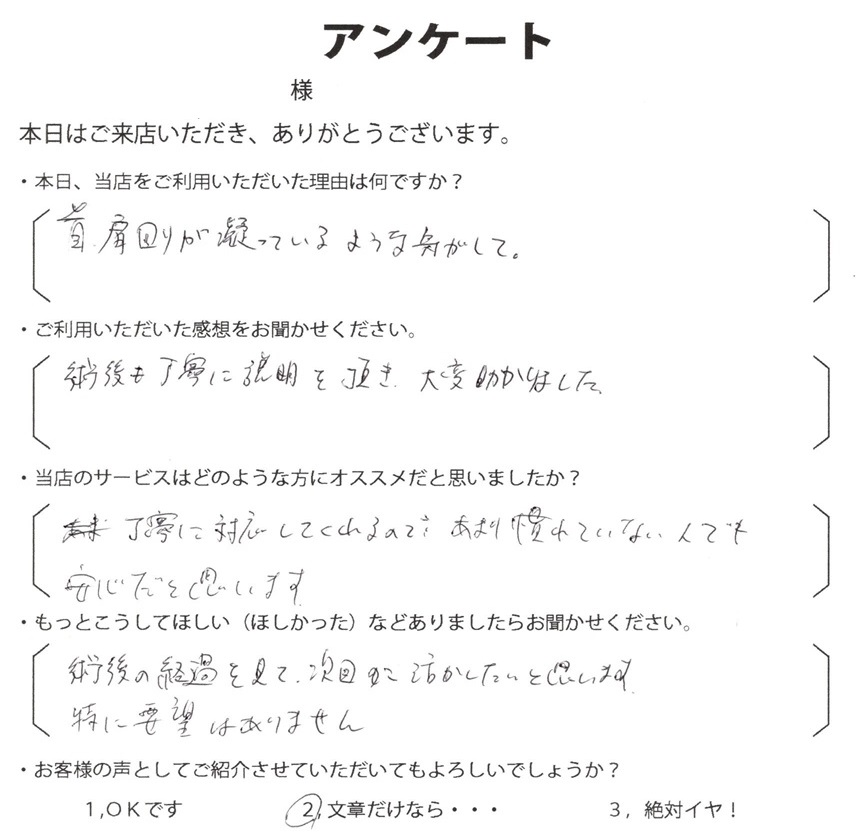 アンケート
様
本日はご来店いただき、ありがとうございます。
・本日、当店をご利用いただいた理由は何ですか？
首、肩回りが凝っているような気がして。
・ご利用いただいた感想をお聞かせください。
術後も丁寧に説明を頂き、大変助かりました。
・当店のサービスはどのような方にオススメだと思いましたか？
丁寧に対応してくれるので、あまり慣れていない人でも
安心だと思います
・もっとこうしてほしい（ほしかった）などありましたらお聞かせください。
術後の経過を見て、次回に活かしたいと思います
特に要望はありません
・お客様の声としてご紹介させていただいてもよろしいでしょうか？
1,ＯＫです　2,文章だけなら・・・　3，絶対イヤ！